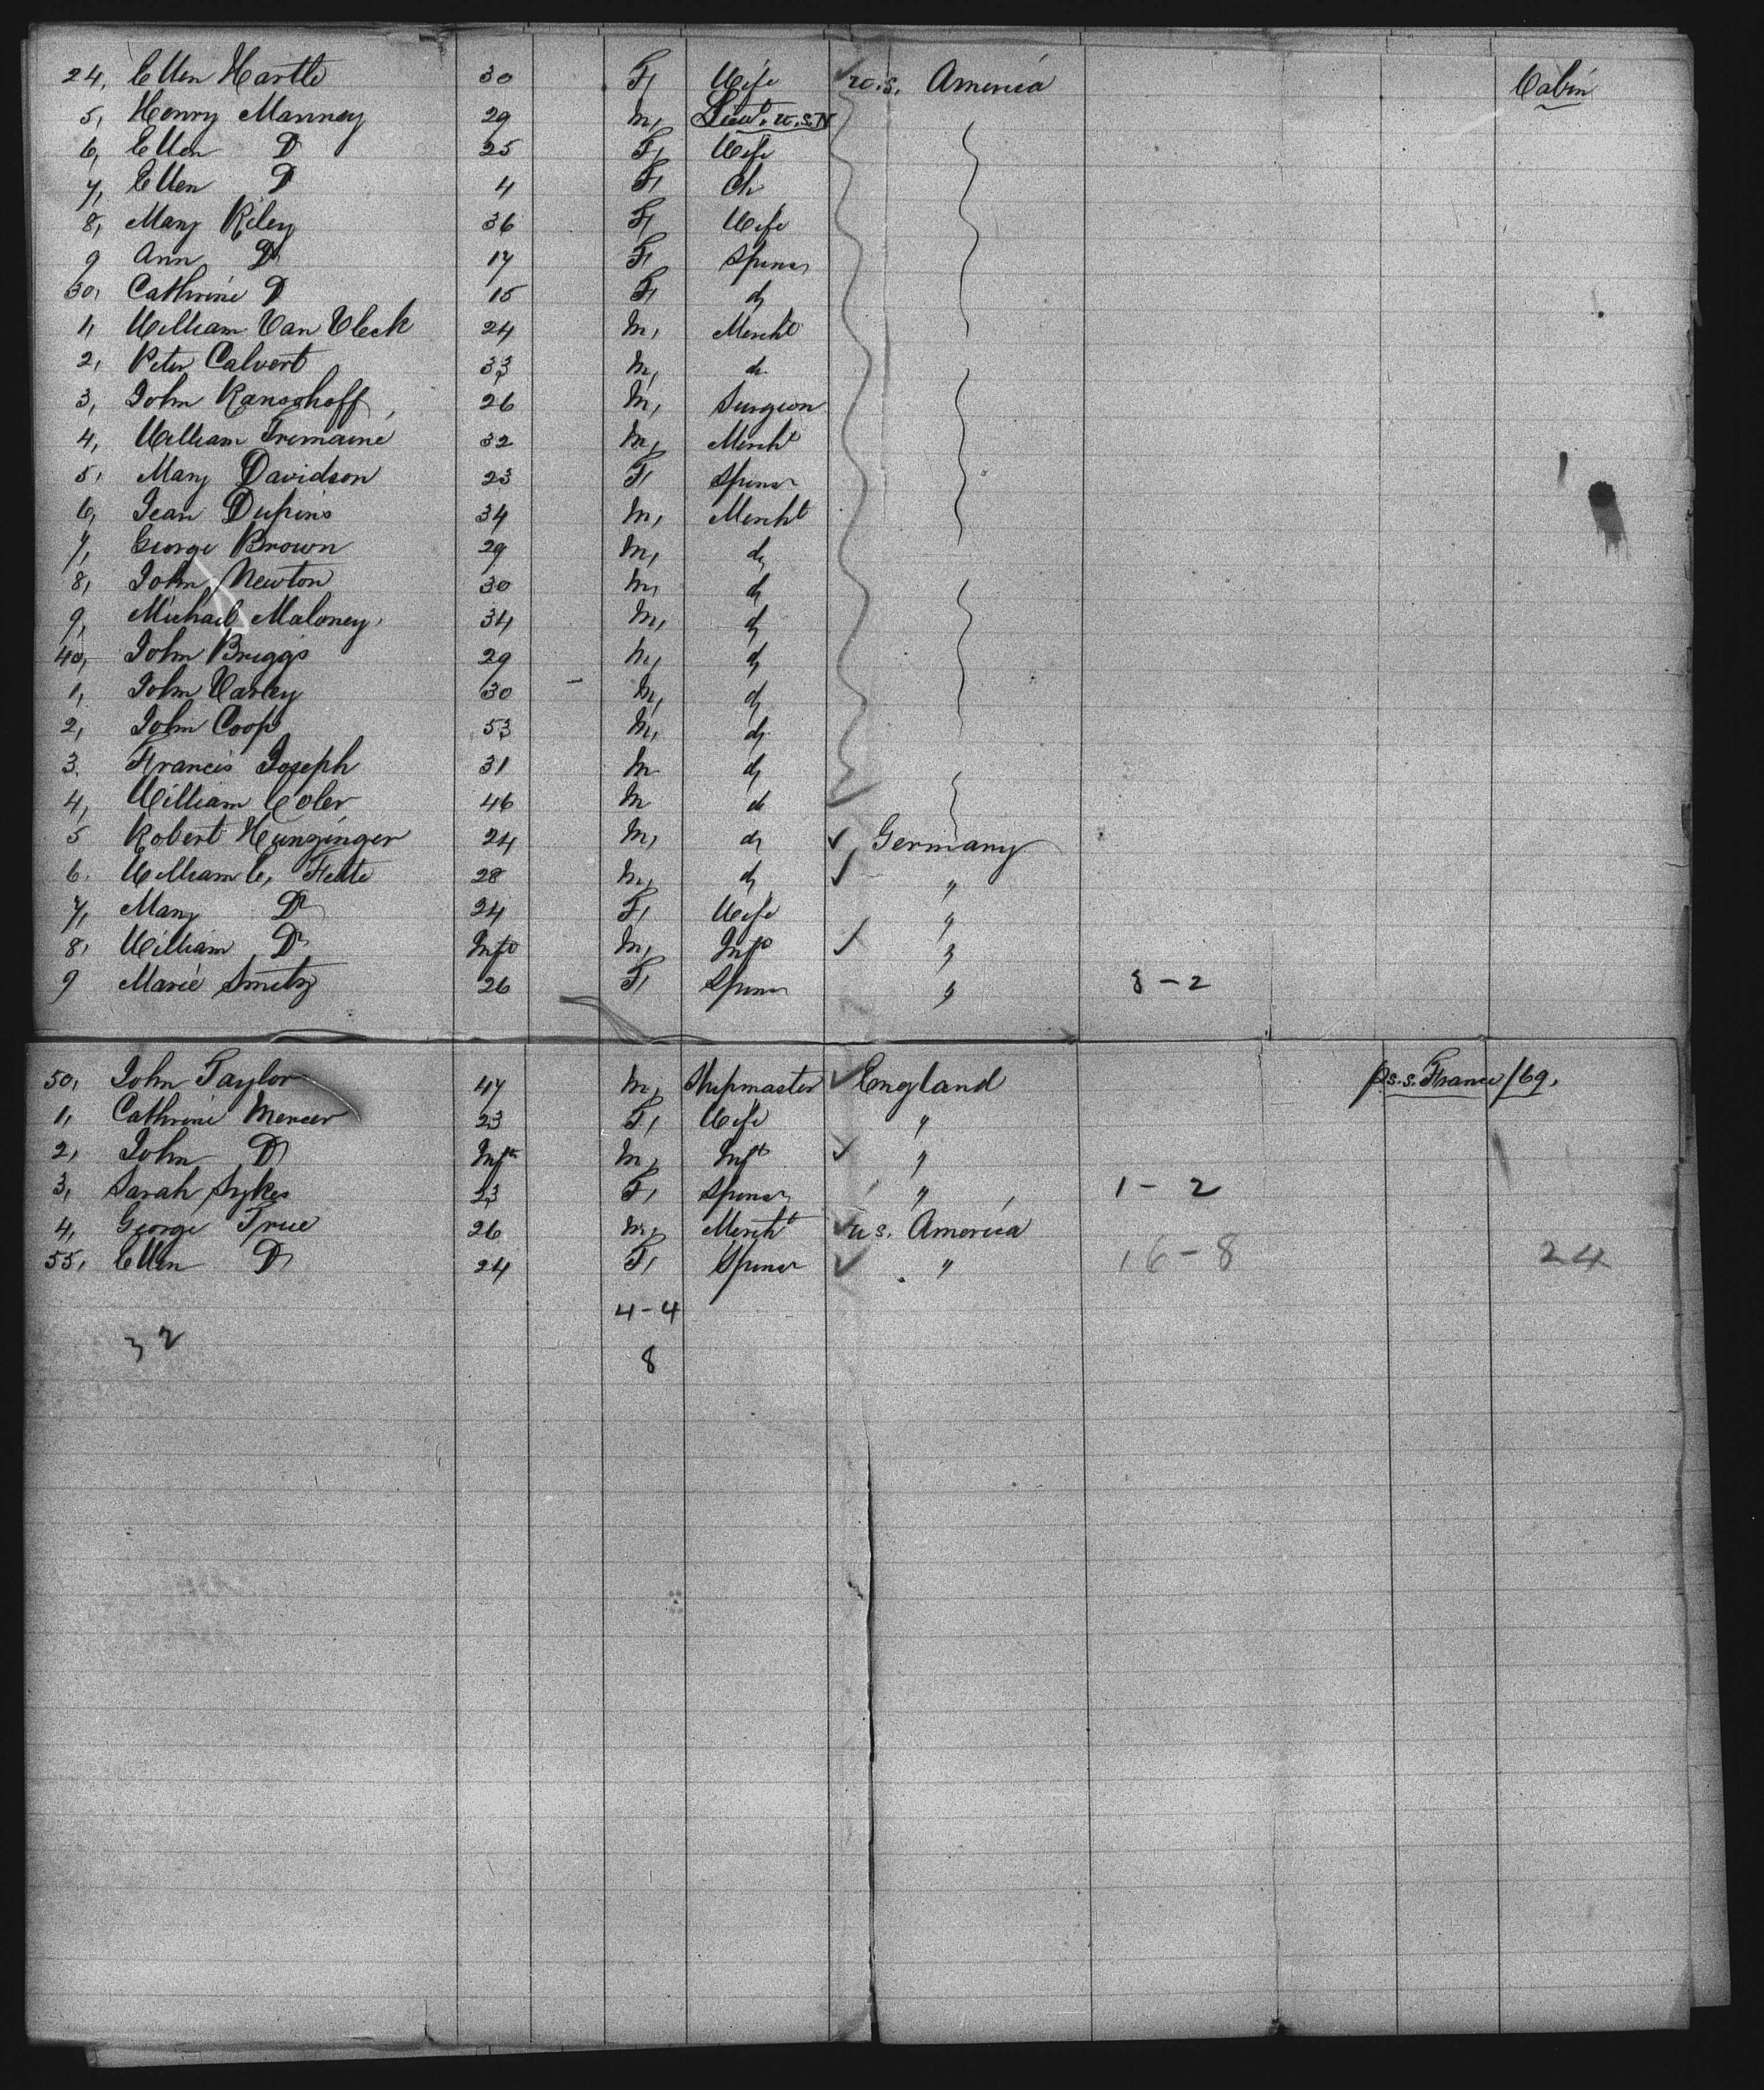 24, Ellen Hartle 30 F, Wife U.S. America Cabin
5, Henry Manney 29 M, Lieut. U.S.N
6, Ellen D 25 F, Wife
7, Ellen D 4 F, Ch
8, Mary Riley 36 F, Wife
9 Ann D 17 F, Spinsr
30, Cathrine D 15 F, do
1, William Van Vleck 24 M, Mercht
2, Peter Calvert 33 M, do
3, John Ransohoff, 26 M, Surgeon
4, William Tremaine 32 M, Mercht
5, Mary Davidson 23 F, Spinsr
6, Jean Dupins 34 M, Mercht
7, George Brown 29 M, do
8, John Newton 30 M, do
9, Michael Maloney, 34 M, do
40, John Briggs 29 M, do
1, John Varley 30 M, do
2, John Coop 53 M, do
3. Francis Joseph 31 M do
4, William Coler 46 M do
5 Robert Hunzinger 24 M, do Germany
6. William C, Fette 28 M, do "
7, Mary Do 24 F, Wife "
8, William Do Inft M, Inft "
9 Marie Smitz 26 F, Spinsr " 8-2
50, John Taylor 47 M, Shipmaster England p s.s. France /69.
1, Cathrine Mercer 23 F, Wife "
2, John D Inft M, Inft "
3, Sarah Sykes 23 F, Spinsr " 1-2
4, George True 26 M, Mercht U S. America
55, Ellen D 24 F, Spinsr " 16-8 24
4-4
32
8